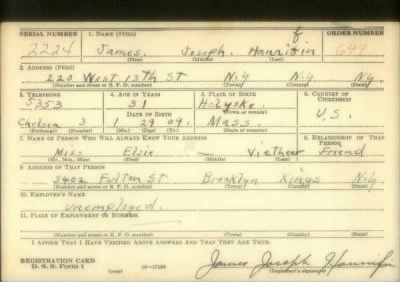 SERIAL NUMBER 1. NAME (Print) ORDER NUMBER
2224 James Joseph Hannifin 699
(First) (Middle) (Last)
2. ADDRESS (Print)
220 West 13th St N.Y N.Y N.Y.
(Number and street or R. F. D. number) (Town) (County) (State)
3. TELEPHONE 4. AGE IN YEARS 5. PLACE OF BIRTH 6. COUNTRY OF CITIZENSHIP
5353 31 Holyoke
DATE OF BIRTH (Town or county) U.S.
Chelsea 3 1 29 09. Mass.
(Exchange) (Number) (Mo.) (Day) (Yr.) (State or country)
7. NAME OF PERSON WHO WILL ALWAYS KNOW YOUR ADDRESS 8. RELATIONSHIP OF THAT PERSON
Miss Elsie — Friend
(Mr., Mrs., Miss) (First) (Middle) (Last)
9. ADDRESS OF THAT PERSON
3402 Fulton St. Brooklyn Kings N.Y
(Number and street or R. F. D. number) (Town) (County) (State)
10. EMPLOYER'S NAME
Unemployed.
11. PLACE OF EMPLOYMENT OR BUSINESS
(Number and street or R. F. D. number) (Town) (County) (State)
I AFFIRM THAT I HAVE VERIFIED ABOVE ANSWERS AND THAT THEY ARE TRUE.
REGISTRATION CARD
D. S. S. Form 1 (over) James Joseph Hannifin
(Registrant's signature)